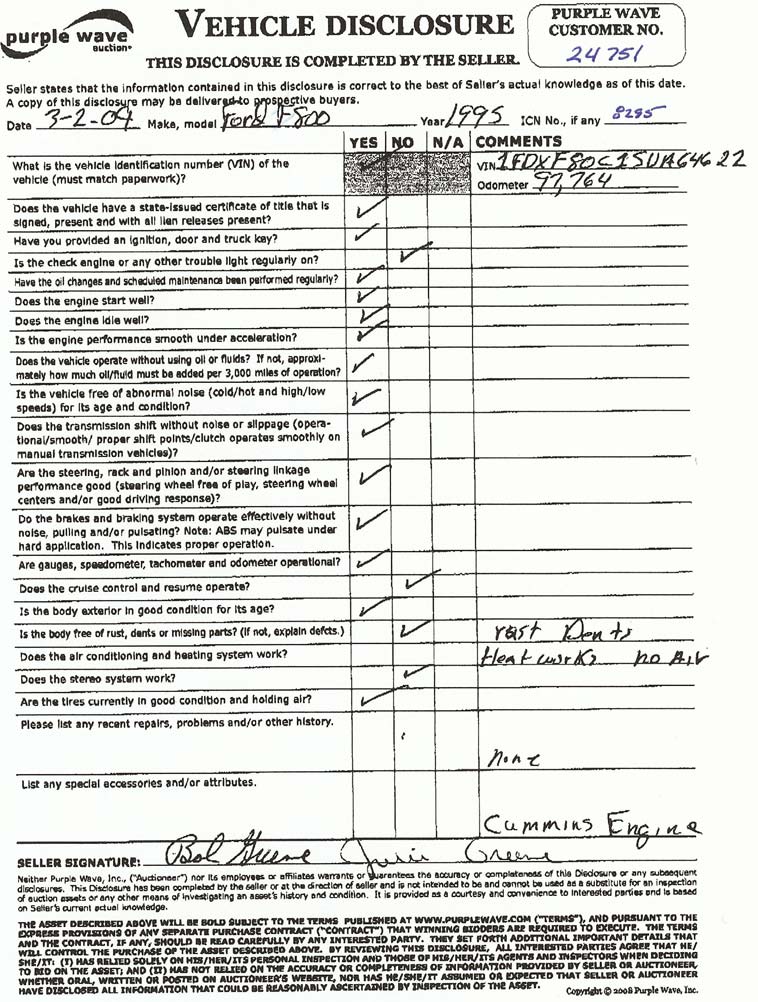 purple wave
auction
VEHICLE DISCLOSURE
THIS DISCLOSURE IS COMPLETED BY THE SELLER.
PURPLE WAVE
CUSTOMER NO.
24751
Seller states that the information contained in this disclosure is correct to the best of Seller's actual knowledge as of this date.
A copy of this disclosure may be delivered to prospective buyers.
Date 3-2-09 Make, model Ford F800 Year 1995 ICN No., if any 8295
YES NO N/A COMMENTS
What is the vehicle identification number (VIN) of the
vehicle (must match paperwork)?
VIN 1FDXF80C1SUA64622
Odometer 97,764
Does the vehicle have a state-issued certificate of title that is
signed, present and with all lien releases present?
Have you provided an ignition, door and truck key?
Is the check engine or any other trouble light regularly on?
Have the oil changes and scheduled maintenance been performed regularly?
Does the engine start well?
Does the engine idle well?
Is the engine performance smooth under acceleration?
Does the vehicle operate without using oil or fluids? If not, approxi-
mately how much oil/fluid must be added per 3,000 miles of operation?
Is the vehicle free of abnormal noise (cold/hot and high/low
speeds) for its age and condition?
Does the transmission shift without noise or slippage (opera-
tional/smooth/ proper shift points/clutch operates smoothly on
manual transmission vehicles)?
Are the steering, rack and pinion and/or steering linkage
performance good (steering wheel free of play, steering wheel
centers and/or good driving response)?
Do the brakes and braking system operate effectively without
noise, pulling and/or pulsating? Note: ABS may pulsate under
hard application. This indicates proper operation.
Are gauges, speedometer, tachometer and odometer operational?
Does the cruise control and resume operate?
Is the body exterior in good condition for its age?
Is the body free of rust, dents or missing parts? (If not, explain defcts.) rust Dents
Does the air conditioning and heating system work? Heat works no Air
Does the stereo system work?
Are the tires currently in good condition and holding air?
Please list any recent repairs, problems and/or other history.
None
List any special accessories and/or attributes.
Cummins Engine
SELLER SIGNATURE: Bob Greene Julie Greene
Neither Purple Wave, Inc., ("Auctioneer") nor its employees or affiliates warrants or guarantees the accuracy or completeness of this Disclosure or any subsequent
disclosures. This Disclosure has been completed by the seller or at the direction of seller and is not intended to be and cannot be used as a substitute for an inspection
of auction assets or any other means of investigating an asset's history and condition. It is provided as a courtesy and convenience to interested parties and is based
on Seller's current actual knowledge.
THE ASSET DESCRIBED ABOVE WILL BE SOLD SUBJECT TO THE TERMS PUBLISHED AT WWW.PURPLEWAVE.COM ("TERMS"), AND PURSUANT TO THE
EXPRESS PROVISIONS OF ANY SEPARATE PURCHASE CONTRACT ("CONTRACT") THAT WINNING BIDDERS ARE REQUIRED TO EXECUTE. THE TERMS
AND THE CONTRACT, IF ANY, SHOULD BE READ CAREFULLY BY ANY INTERESTED PARTY. THEY SET FORTH ADDITIONAL IMPORTANT DETAILS THAT
WILL CONTROL THE PURCHASE OF THE ASSET DESCRIBED ABOVE. BY REVIEWING THIS DISCLOSURE, ALL INTERESTED PARTIES AGREE THAT HE/
SHE/IT: (I) HAS RELIED SOLELY ON HIS/HER/ITS PERSONAL INSPECTION AND THOSE OF HIS/HER/ITS AGENTS AND INSPECTORS WHEN DECIDING
TO BID ON THE ASSET; AND (II) HAS NOT RELIED ON THE ACCURACY OR COMPLETENESS OF INFORMATION PROVIDED BY SELLER OR AUCTIONEER,
WHETHER ORAL, WRITTEN OR POSTED ON AUCTIONEER'S WEBSITE, NOR HAS HE/SHE/IT ASSUMED OR EXPECTED THAT SELLER OR AUCTIONEER
HAVE DISCLOSED ALL INFORMATION THAT COULD BE REASONABLY ASCERTAINED BY INSPECTION OF THE ASSET.
Copyright © 2008 Purple Wave, Inc.